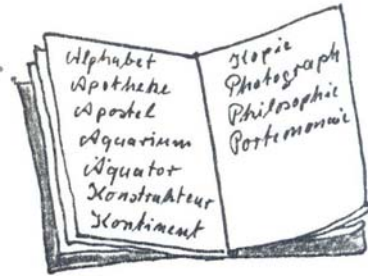 Alphabet
Apotheke
Apostel
Aquarium
Äquator
Konstrukteur
Kontinent
Kopie
Photograph
Philosophie
Portemonaie